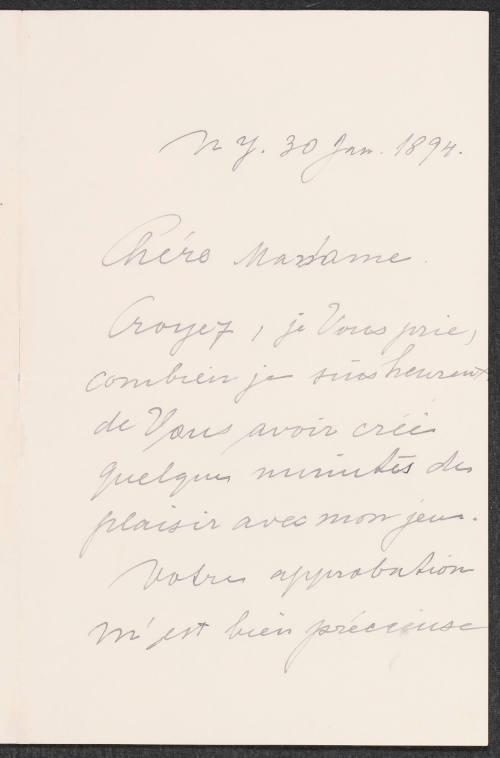 N Y. 30 Jan. 1894.
Chère Madame.
Croyez, je Vous prie,
combien je suis heureux
de Vous avoir créé
quelques minutes de
plaisir avec mon jeu.
Votre approbation
m'est bien précieuse